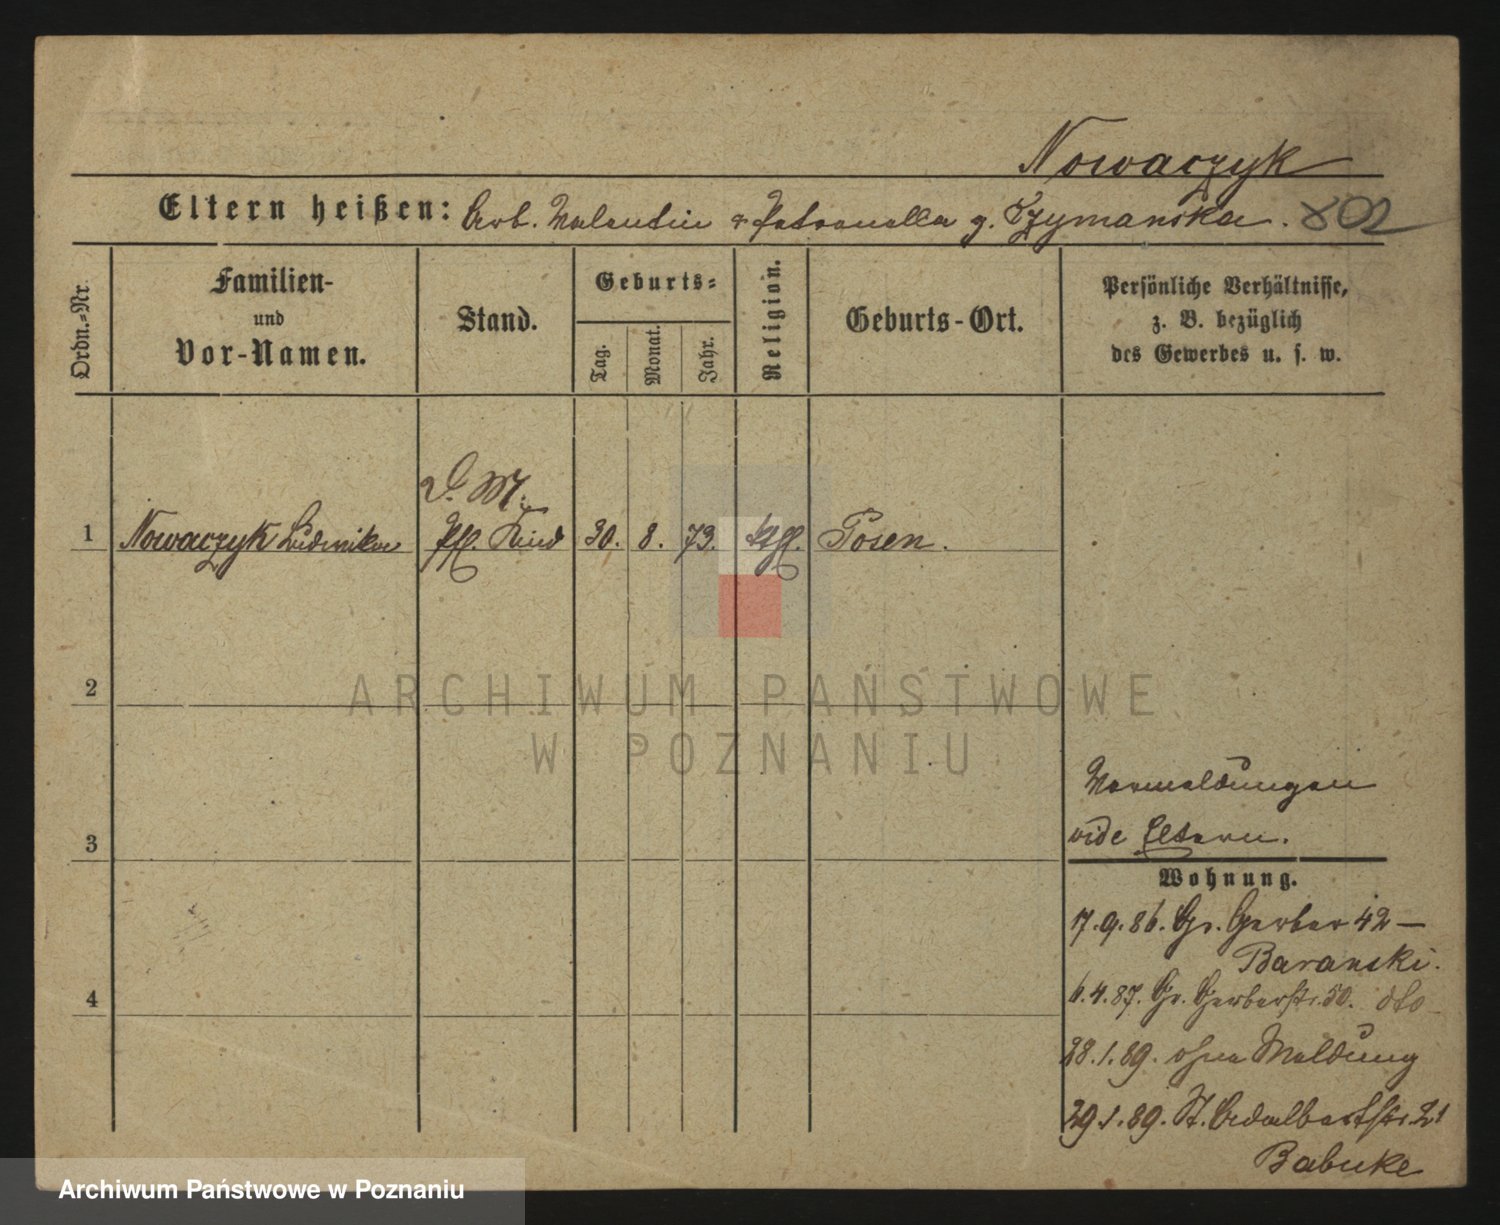 Nowaczyk
Eltern heißen: Arb. Valentin & Petronella g. Szymanska. 802
Ordn.-Nr.
Familien-
und
Vor-Namen.
Stand.
Geburts-
Tag.
Monat.
Jahr.
Religion.
Geburts-Ort.
Persönliche Verhältnisse,
z. B. bezüglich
des Gewerbes u. s. w.
D. M.
1 Nowaczyk Ludwika Pfl. Kind 30. 8. 73. kath. Posen.
2
ARCHIWUM PAŃSTWOWE
W POZNANIU
Vormeldungen
3 vide Eltern.
Wohnung.
17.9.86. Gr. Gerber 42 —
Baranski.
4 6.4.87. Gr. Gerberstr. 50. dto
28.1.89. ohne Meldung
29.1.89. St. Adalbertstr. 21
Babuke
Archiwum Państwowe w Poznaniu